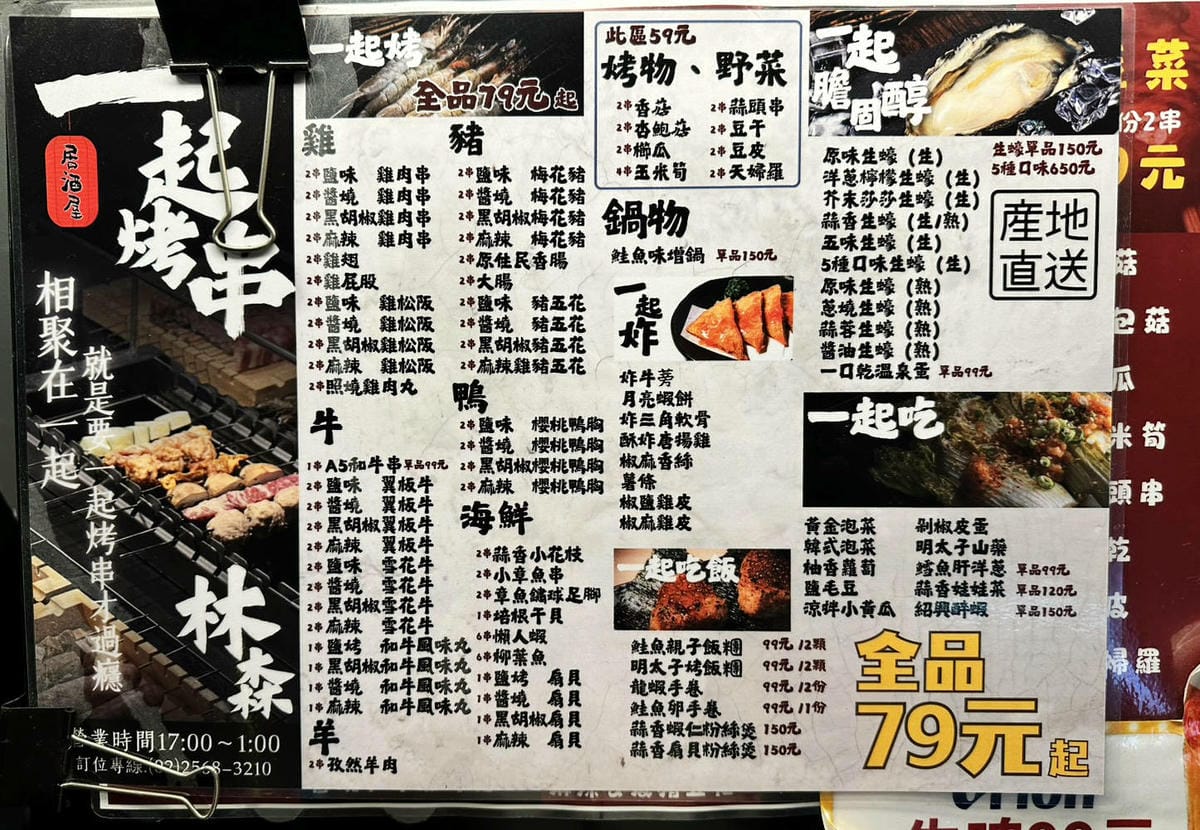 一起烤串
居酒屋
相聚在一起
就是要一起烤串才過癮
林森
營業時間17:00~1:00
訂位專線:(02)2568-3210
一起烤
全品79元起
雞
2串鹽味 雞肉串
2串醬燒 雞肉串
2串黑胡椒雞肉串
2串麻辣 雞肉串
2串雞翅
2串雞屁股
2串鹽味 雞松阪
2串醬燒 雞松阪
2串黑胡椒雞松阪
2串麻辣 雞松阪
2串照燒雞肉丸
牛
1串A5和牛串單品99元
2串鹽味 翼板牛
2串醬燒 翼板牛
2串黑胡椒翼板牛
2串麻辣 翼板牛
2串鹽味 雪花牛
2串醬燒 雪花牛
2串黑胡椒雪花牛
2串麻辣 雪花牛
1串鹽烤 和牛風味丸
1串黑胡椒和牛風味丸
1串醬燒 和牛風味丸
1串麻辣 和牛風味丸
羊
2串孜然羊肉
豬
2串鹽味 梅花豬
2串醬燒 梅花豬
2串黑胡椒梅花豬
2串麻辣 梅花豬
2串原住民香腸
2串大腸
2串鹽味 豬五花
2串醬燒 豬五花
2串黑胡椒豬五花
2串麻辣雞豬五花
鴨
2串鹽味 櫻桃鴨胸
2串醬燒 櫻桃鴨胸
2串黑胡椒櫻桃鴨胸
2串麻辣 櫻桃鴨胸
海鮮
2串蒜香小花枝
2串小章魚串
2串章魚鏽球足腳
1串培根干貝
6串懶人蝦
6串柳葉魚
1串鹽烤 扇貝
1串醬燒 扇貝
1串黑胡椒扇貝
1串麻辣 扇貝
此區59元
烤物、野菜
2串香菇
2串杏鮑菇
2串櫛瓜
4串玉米筍
2串蒜頭串
2串豆干
2串豆皮
2串天婦羅
鍋物
鮭魚味增鍋 單品150元
一起炸
炸牛蒡
月亮蝦餅
炸三角軟骨
酥炸唐揚雞
椒麻香絲
薯條
椒鹽雞皮
椒麻雞皮
一起吃飯
鮭魚親子飯糰 99元/2顆
明太子烤飯糰 99元/2顆
龍蝦手卷 99元/2份
鮭魚卵手卷 99元/1份
蒜香蝦仁粉絲煲 150元
蒜香扇貝粉絲煲 150元
一起膽固醇
生蠔單品150元
5種口味650元
原味生蠔(生)
洋蔥檸檬生蠔(生)
芥末莎莎生蠔(生)
蒜香生蠔(生/熟)
五味生蠔(生)
5種口味生蠔(生)
原味生蠔(熟)
蔥燒生蠔(熟)
蒜蓉生蠔(熟)
醬油生蠔(熟)
一口乾溫泉蛋 單品99元
產地
直送
一起吃
黃金泡菜
韓式泡菜
柚香蘿蔔
鹽毛豆
涼拌小黃瓜
剁椒皮蛋
明太子山藥
鱈魚肝洋蔥 單品99元
蒜香娃娃菜 單品120元
紹興醉蝦 單品150元
全品
79元起
菜
份2串
元
菇
包菇
瓜
米筍
頭串
乾
皮
婦羅